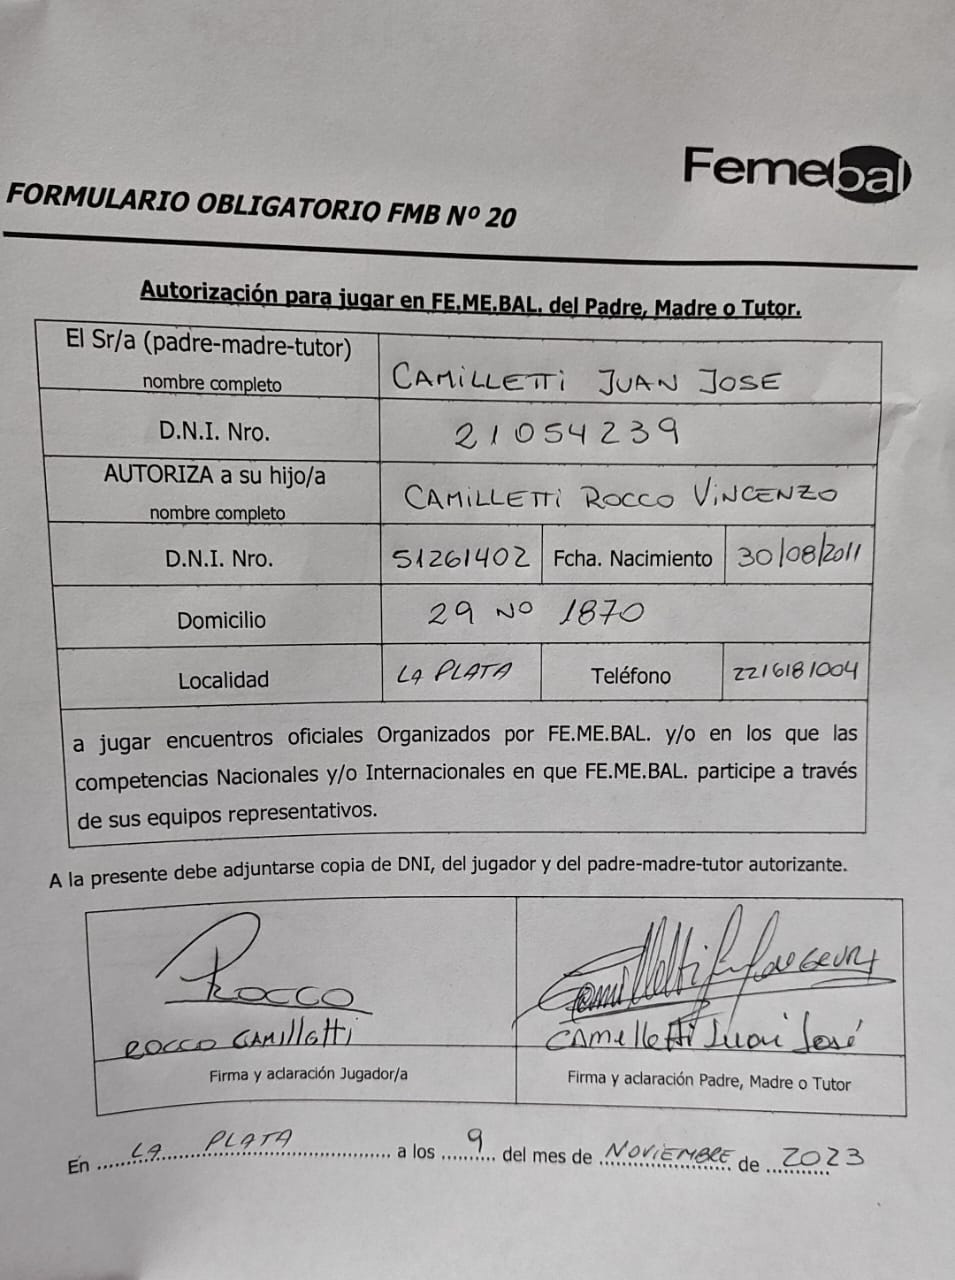 Femebal
FORMULARIO OBLIGATORIO FMB Nº 20
Autorización para jugar en FE.ME.BAL. del Padre, Madre o Tutor.
El Sr/a (padre-madre-tutor)
nombre completo
CAMILLETTI JUAN JOSE
D.N.I. Nro.
21054239
AUTORIZA a su hijo/a
nombre completo
CAMILLETTI ROCCO VINCENZO
D.N.I. Nro. 51261402 Fcha. Nacimiento 30/08/2011
Domicilio 29 Nº 1870
Localidad LA PLATA Teléfono 2216181004
a jugar encuentros oficiales Organizados por FE.ME.BAL. y/o en los que las
competencias Nacionales y/o Internacionales en que FE.ME.BAL. participe a través
de sus equipos representativos.
A la presente debe adjuntarse copia de DNI, del jugador y del padre-madre-tutor autorizante.
ROCCO
ROCCO CAMIllEtti
Firma y aclaración Jugador/a
CAmilletti Juan José
Firma y aclaración Padre, Madre o Tutor
En LA PLATA a los 9 del mes de NOVIEMBRE de 2023